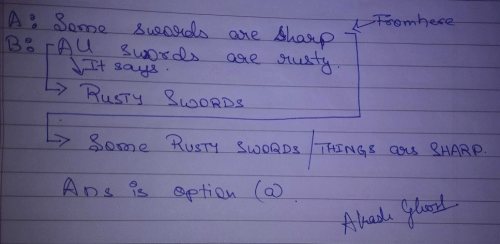 A: Some swords are sharp
From here
B: All swords are rusty.
It says.
RUSTY SWORDS
Some RUSTY SWORDS / THINGS are SHARP.
Ans is option (a).
Akash Ghosh